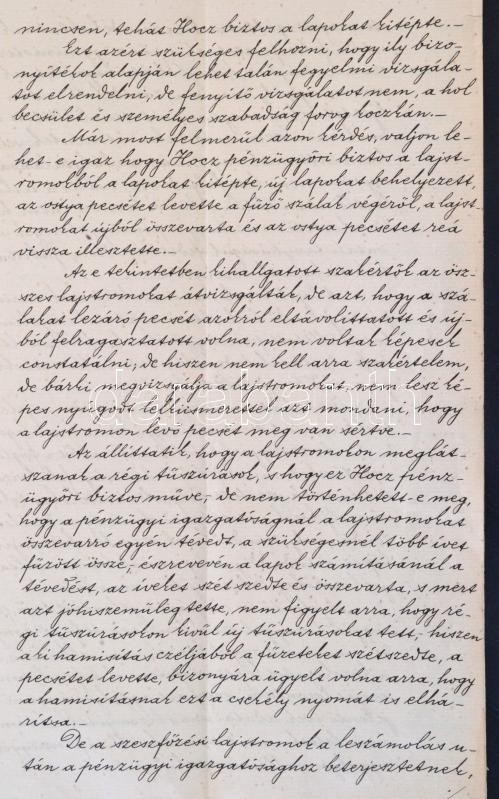 nincsen, tehát Hocz biztos a lapokat kitépte.-
Ezt azért szükséges felhozni, hogy ily bizo-
nyitékok alapján lehet talán fegyelmi vizsgála-
tot elrendelni, de fenyitő vizsgálatot nem, a hol
becsület és személyes szabadság forog koczkán.-
Már most felmerül azon kérdés, valjon le-
het-e igaz hogy Hocz pénzügyőri biztos a lajst-
romokból a lapokat kitépte, új lapokat behelyezett,
az ostya pecsétet levette a fűző szálak végéről, a lajst-
romokat újból összevarta és az ostya pecsétet reá
vissza illesztette.-
Az e tekintetben kihallgatott szakértők az ösz-
szes lajstromokat átvizsgálták, de azt, hogy a szá-
lakat lezáró pecsét azokról eltávolittatott és új-
ból felragasztatott volna, nem voltak képesek
constatálni; de hiszen nem kell arra szakértelem,
de bárki megvizsgálja a lajstromokat, nem lesz ké-
pes nyugodt lelkiismerettel azt mondani, hogy
a lajstromon levő pecsét meg van sértve.-
Az állittatik, hogy a lajstromokon meglát-
szanak a régi tűszúrások, s hogy ez Hocz pénz-
ügyőri biztos műve,- de nem történhetett-e meg,
hogy a pénzügyi igazgatóságnál a lajstromokat
összevarró egyén tévedt, a szükségesnél több ivet
fűzött össze,- észrevevén a lapok számitásánál a
tévedést, az iveket szét szedte és összevarta, s mert
azt jóhiszemüleg tette, nem figyelt arra, hogy ré-
gi tűszúrásokon kivül új tűszúrásokat tett,- hiszen
a ki hamisitás czéljából a füzeteket szétszedte, a
pecsétet levette, bizonyára ügyelt volna arra, hogy
a hamisitásnak ezt a csekély nyomát is elhá-
ritsa.-
De a szeszfőzési lajstromok a leszámolás u-
tán a pénzügyi igazgatósághoz beterjesztetnek,
./.
darabanth